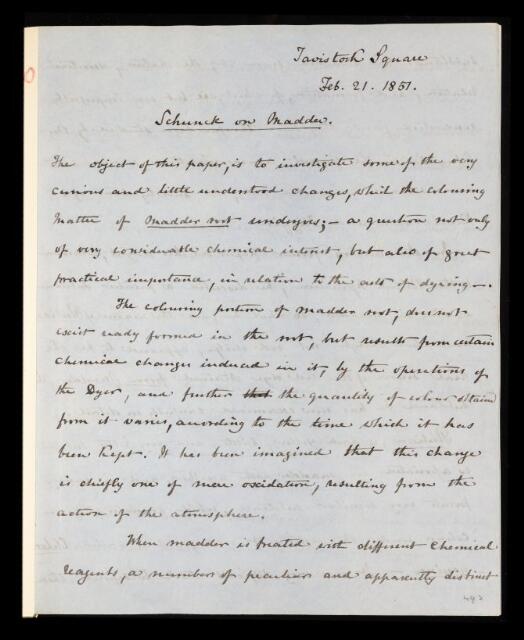 Tavistock Square
Feb. 21. 1851.
Schunck on Madder.
The object of this paper, is to investigate some of the very
curious and little understood changes, which the colouring
matter of Madder root undergoes; – a question not only
of very considerable chemical interest, but also of great
practical importance, in relation to the arts of dyeing –.
The colouring portion of madder root, does not
exist ready formed in the root, but results from certain
chemical changes induced in it, by the operations of
the Dyer, and further that the quantity of colour obtained
from it varies, according to the time which it has
been Kept. It has been imagined that this change
is chiefly one of mere oxidation, resulting from the
action of the atmosphere.
When madder is treated with different Chemical
reagents, a number of peculiar and apparently distinct